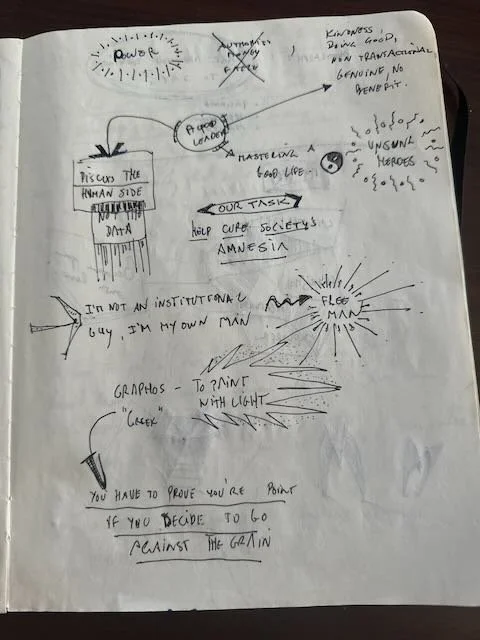 POWER
AUTHORITY
MONEY
FORCE
KINDNESS,
DOING GOOD,
NON TRANSACTIONAL,
GENUINE, NO
BENEFIT.
A GOOD
LEADER
MASTERING A
GOOD LIFE.
UNSUNG
HEROES
DISCUSS THE
HUMAN SIDE
NOT THE
DATA
OUR TASK
HELP CURE SOCIETY'S
AMNESIA
I'M NOT AN INSTITUTIONAL
GUY, I'M MY OWN MAN.
FREE
MAN
GRAPHOS - TO PAINT
WITH LIGHT
"GREEK"
YOU HAVE TO PROVE YOU'RE POINT
IF YOU DECIDE TO GO
AGAINST THE GRAIN